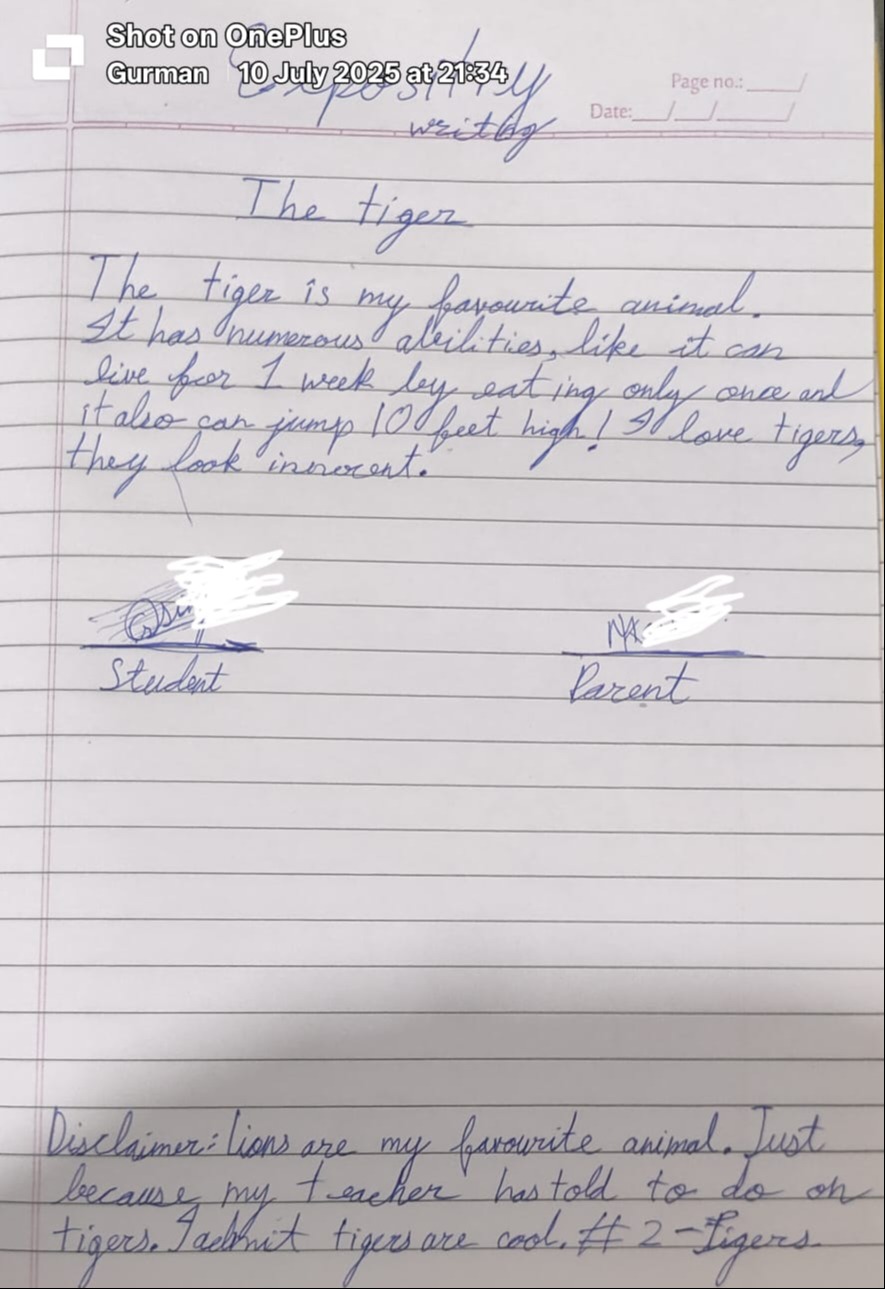 Shot on OnePlus
Gurman 10 July 2025 at 21:34
Expository
writing
Page no.:
Date:
The tiger
The tiger is my favourite animal.
It has numerous abilities, like it can
live for 1 week by eating only once and
it also can jump 10 feet high! I love tigers,
they look innocent.
Student
Parent
Disclaimer: lions are my favourite animal. Just
because my teacher has told to do on
tigers. I admit tigers are cool. # 2 - Tigers